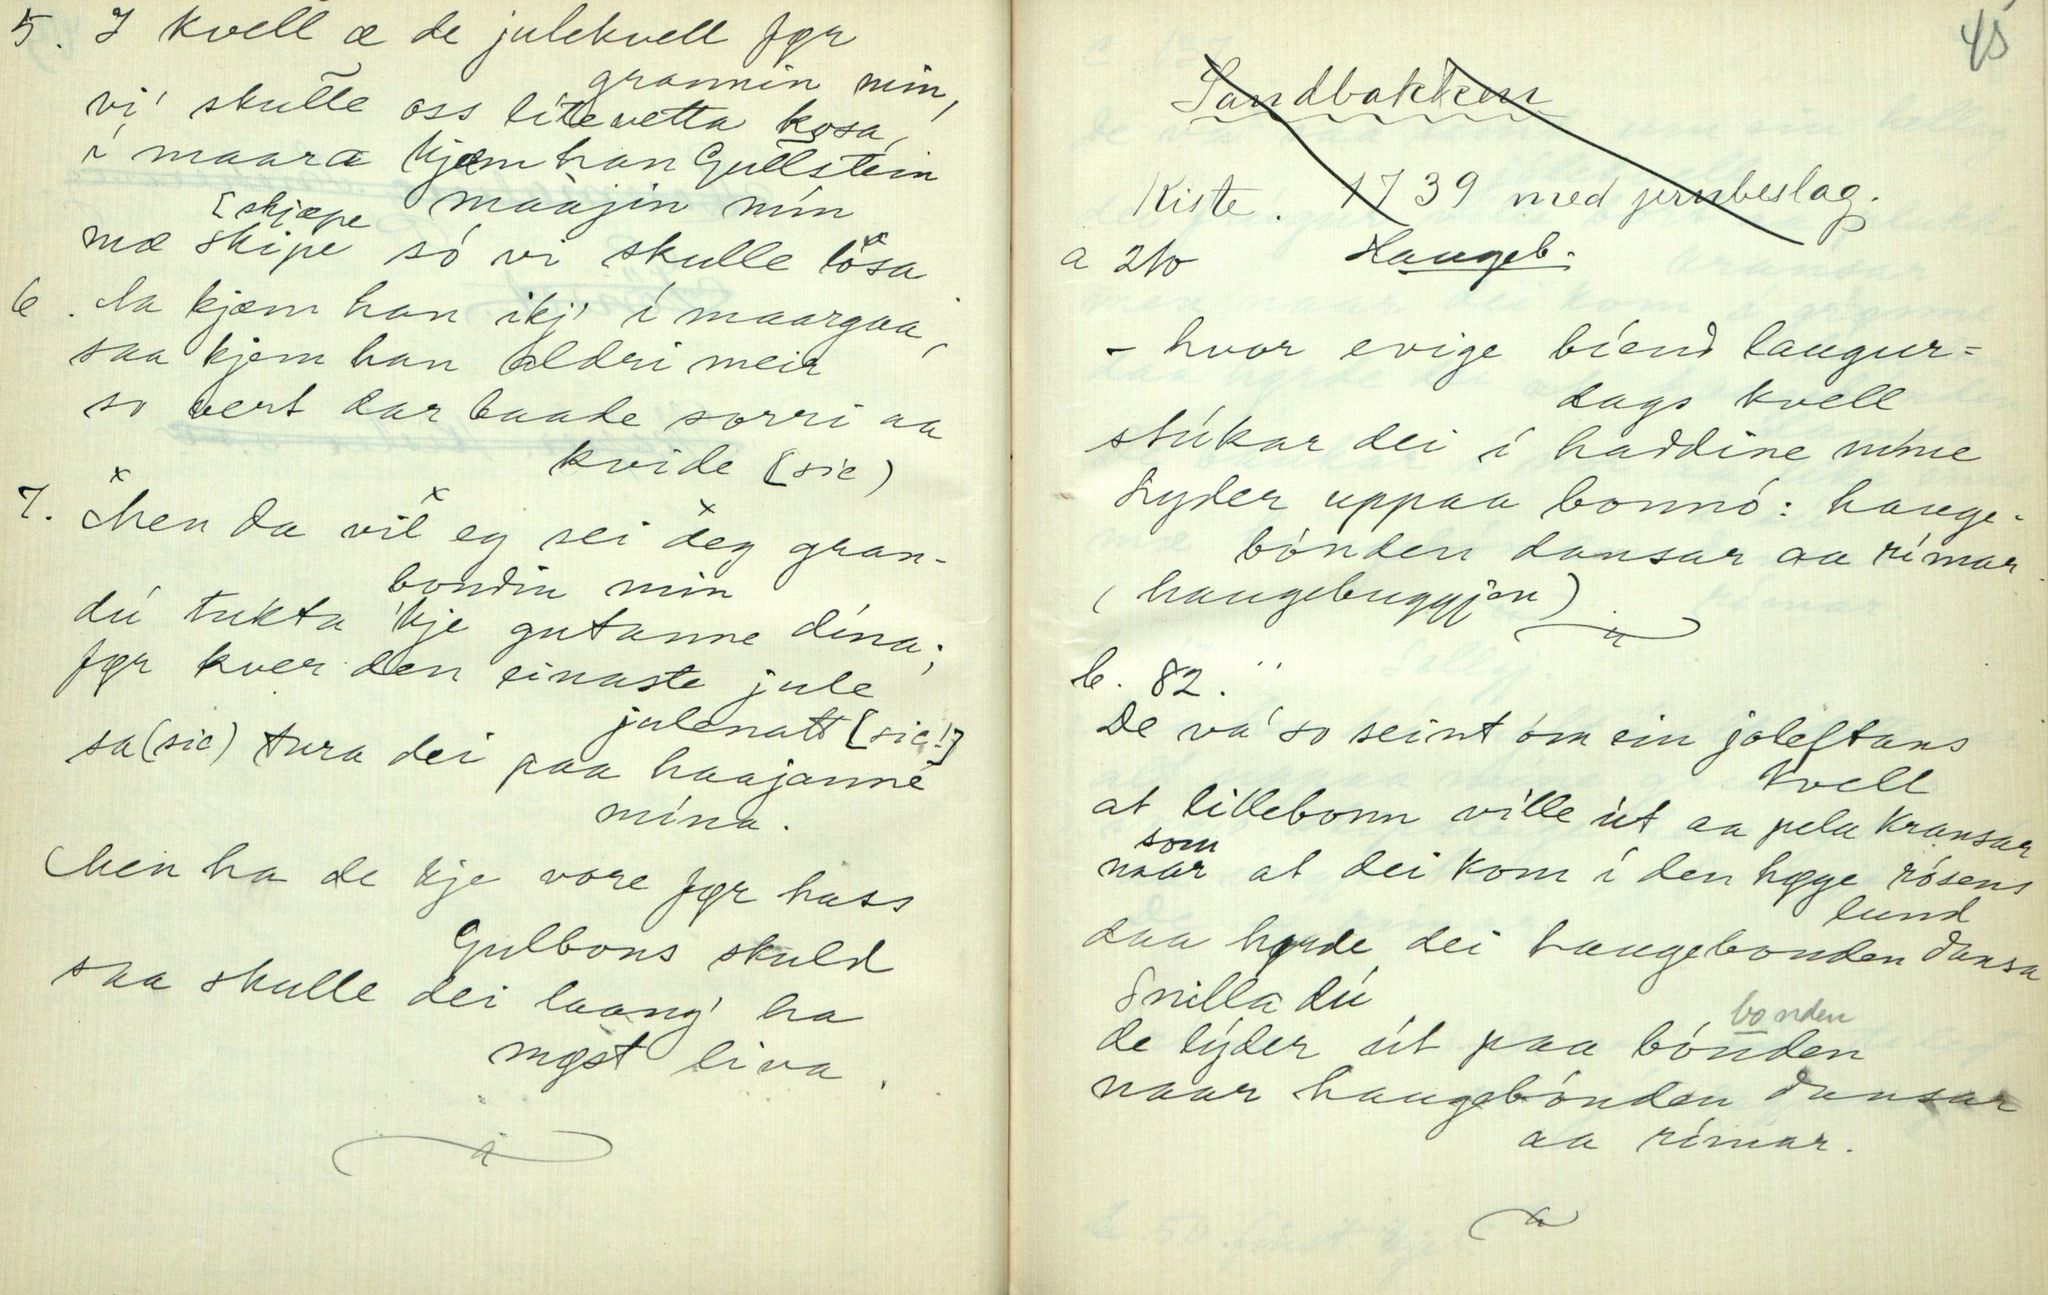 5. I kvell æ de julekvell før
grannin min,
vi skulle oss litevetta kosa,
i maara kjem han Gullstein
[skjæpe maajin min
mæ skipe só vi skulle lösa
6. Aa kjæm han ikj' i maargaa,
saa kjem han aldri meir
so vert dar baade sorri aa
kvide (sic)
7. Men da vil eg sei deg gran-
bondin min
dú tukta 'kje gutanne dína;
før kver den einaste jule
julenatt [sic!]
sa (sic) tura dei paa haajanne
mína.
Men ha de kje vore før hass
Gulbons skuld
saa skulle dei laang' ha
møst liva.
45
Sandbakken
Kiste. 1739 med jernbeslag.
a 210 Haugeb.
- hvor evige biend laugur=
dags kvell
stúkar dei í haddine míne
Lyder uppaa bonnó: hauge-
bónden dansar aa rímar
(haugebuggjen).
b. 82.
De vá so seint óm ein joleftans
kvell
at lillebonn ville út aa pela kransar
som
naar at dei kom í den høge rósens
lund
daa hørde dei haugebonden dansa
Snilla dú
bonden
de lýder út paa bónden
naar haugebónden dansar
aa rímar.